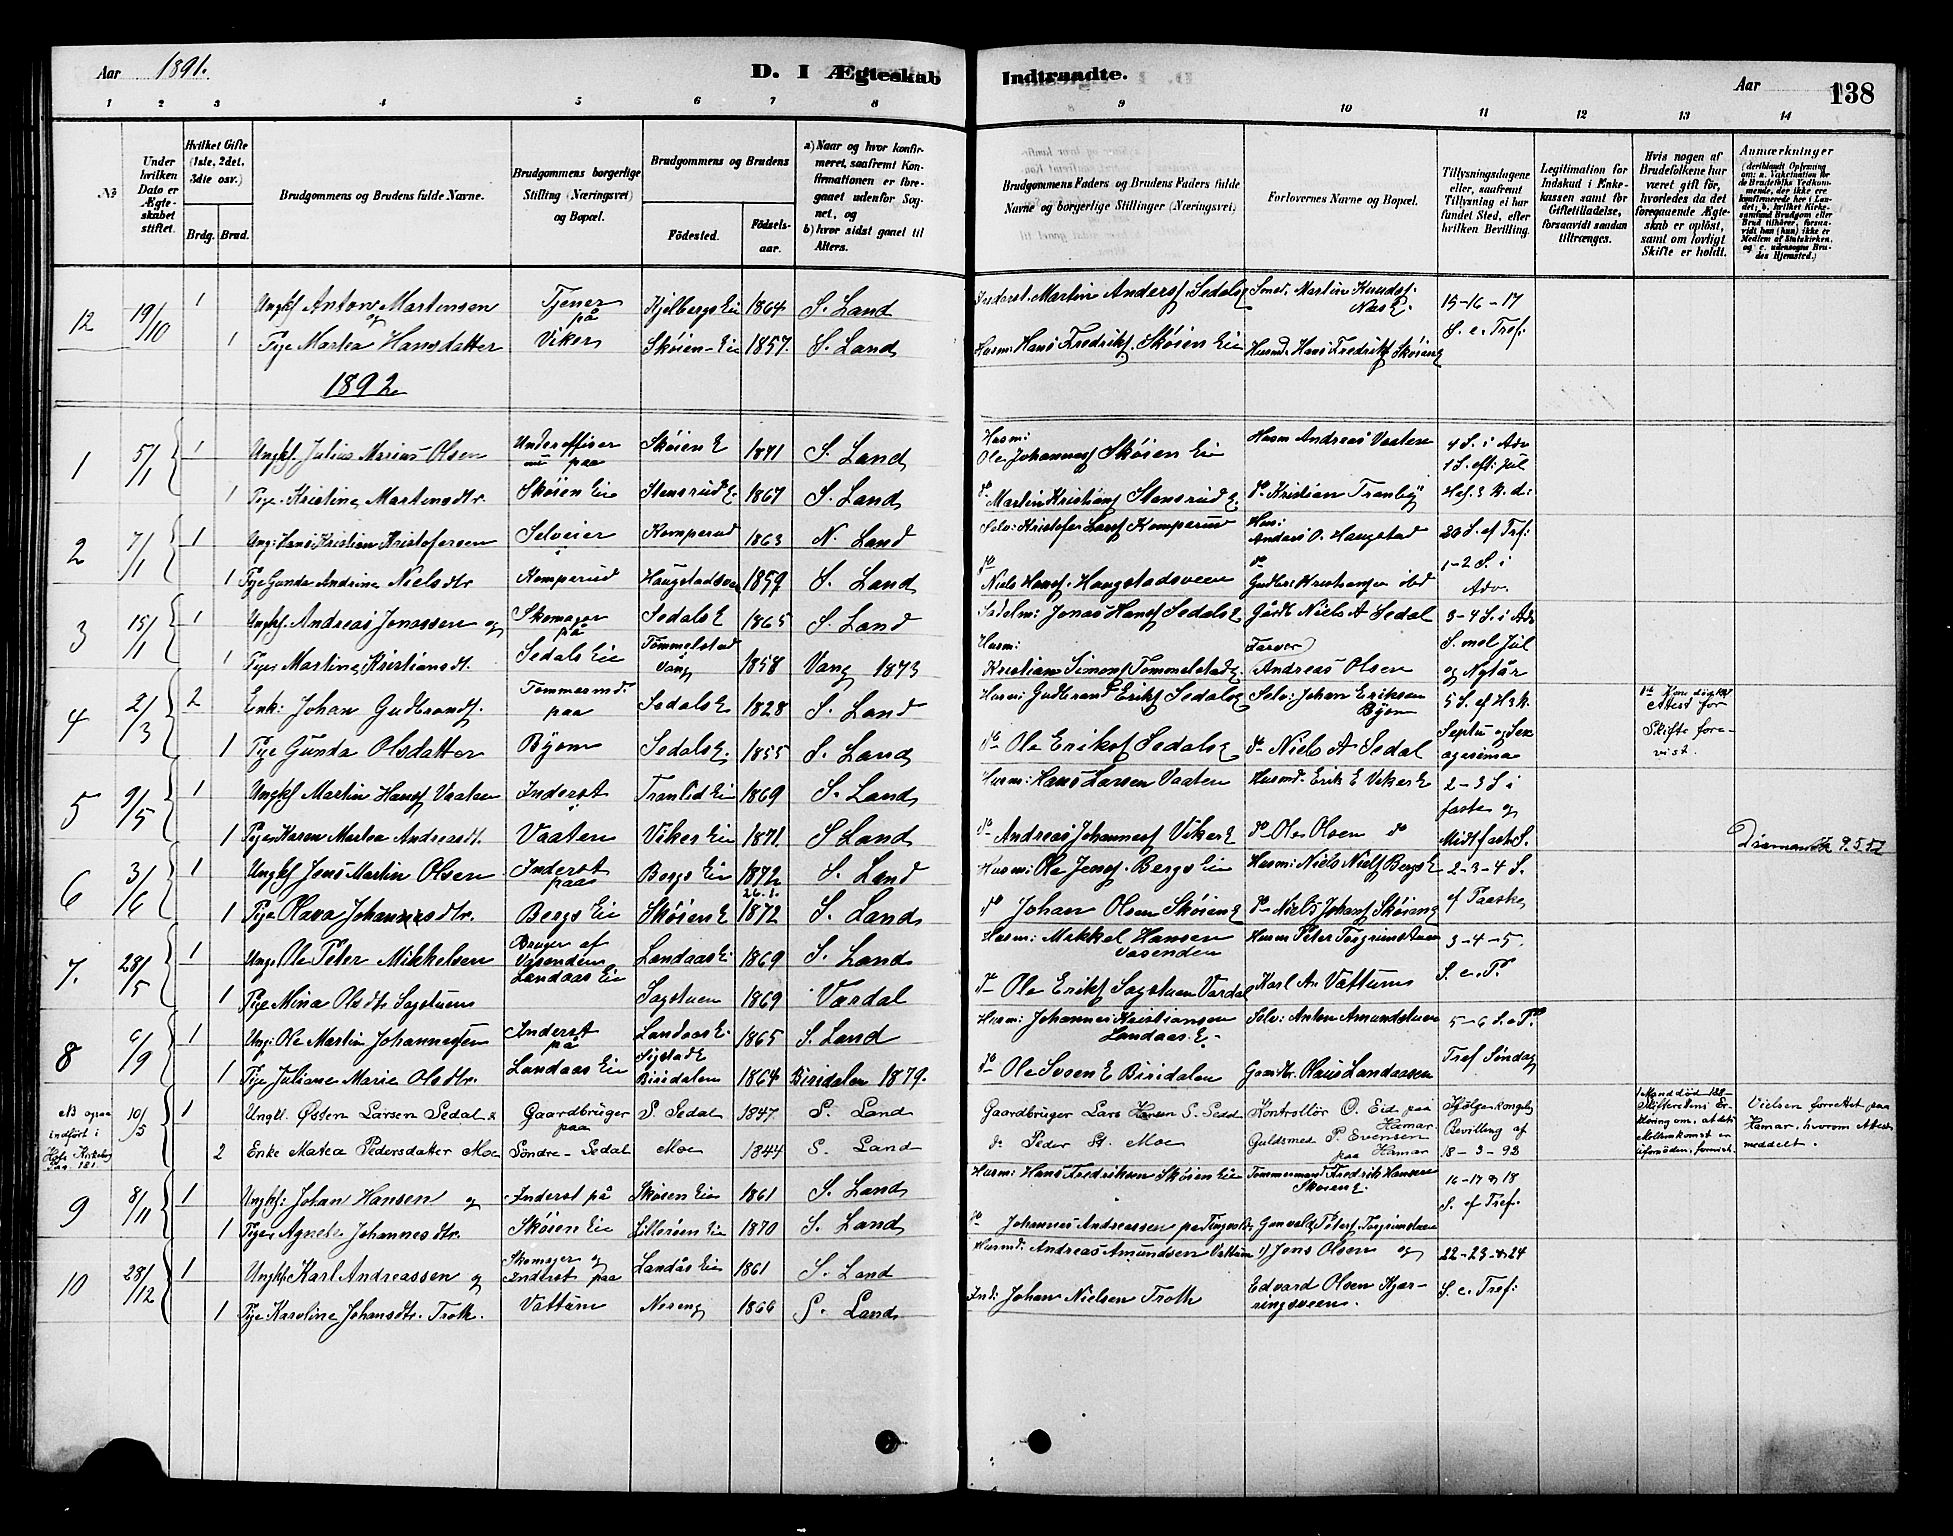 Aar 1891.
D. I Ægteskab Indtraadte.
Aar
138
1 2 3 4 5 6 7 8 9 10 11 12 13 14
№
Under hvilken Dato er Ægteskabet stiftet.
Hvilket Gifte (1ste, 2det, 3die osv.)
Brdg. Brud.
Brudgommens og Brudens fulde Navne.
Brudgommens borgerlige Stilling (Næringsvei) og Bopæl.
Brudgommens og Brudens
Födested.
Födselsaar.
a) Naar og hvor konfirmeret, saafremt Konfirmationen er foregaaet udenfor Sognet, og
b) hvor sidst gaaet til Alters.
Brudgommens Faders og Brudens Faders fulde Navne og borgerlige Stillinger (Næringsvei)
Forlovernes Navne og Bopæl.
Tillysningsdagene eller, saafremt Tillysning ei har fundet Sted, efter hvilken Bevilling.
Legitimation for Indskud i Enkekassen samt for Giftetilladelse, forsaavidt saadan tiltrænges.
Hvis nogen af Brudefolkene har været gift för, hvorledes da det foregaaende Ægteskab er oplöst, samt om lovligt Skifte er holdt.
Anmærkninger
12 19/10 1 Ungkf Anton Martinsen og Tjener på Kjelbergs Eie 1864 S. Land Inderst. Martin Anders. Sedals E Smed. Martin Knuds. Næs E. 15-16-17
1 Pige Martea Hansdatter Viker Skøien-Eie 1857. S. Land Husm. Hans Fredriks. Skøien Eie Husmd. Hans Fredriks. Skøiens E S. e. Tref.
1892
1 5/1 1 Ungkf. Julius Marius Olsen Underoffiser paa Skøien E 1871 S. Land Husm: Ole Johannes. Skøien Eie Husm Andreas Vaaten 4 S. i Adv 1 S. eft. Jul
1 Pige Kristine Martinsdtr. Skøien Eie Stensrud E. 1867 S. Land do Martin Kristians. Stensrud E. do Kristian Tranby
2 7/1 1 Ung. Hans Kristian Kristofersen Selveier Komperud 1863 N. Land Selv: Kristofer Lars. Komperud Hus: Andreas O. Haugstad 20 S. ef Tref:
1 Pige Gunda Andrine Nielsdtr. Komperud Haugstadsveen 1859 S. Land do Niels Hans. Haugstadsveen do Gudbr. Kristiansen ibid 1-2 S. i Adv.
3 15/1 1 Ungkf. Andreas Jonassen og Skomager på Sedals E 1865 S. Land Sadelm: Jonas Hans. Sedals E Gårdb. Niels A Sedal 3-4 S. i Adv
1 Pige Martine Kristiansdt. Sedals Eie Tømmelstad Vang 1858 Vang 1873 Husm: Kristian Simons. Tommelstad E. Farver Andreas Olsen S. mel Jul og Nytår
4 2/3 2 Enk: Johan Gudbrands. Tømmermd. paa Sedals E 1828 S. Land Husm: Gudbrand Eriks. Sedals E Selv: Johan Eriksen Byom 5 S. ef H3K.
1 Pige Gunda Olsdatter Byom Sedals E. 1855 S. Land do Ole Eriks. Sedals E do Niels A Sedal Septu og Sexagesima
Attest for Skifte forevist.
5 9/5 1 Ungkf Martin Hans. Vaaten Inderst i Tranlid Eie 1869 S. Land Husm: Hans Larsen Vaaten Husmd. Erik E Viker E 2-3 S i faste og
1 Pige Karen Martea Andreasdt. Vaaten Viker Eie 1871. S Land do Andreas Johannes. Viker E do Ole Olsen do Midfaste S.
6 3/6 1 Ungkf Jens Martin Olsen Inderst paa Bergs Eie 1872 S. Land Husm: Ole Jens. Bergs Eie Husm: Niels Niels. Bergs E 2-3-4 S.
1 Pige Olava Johannesdtr. Bergs Eie Skøien E 26.1. 1872 S. Land do Johan Olsen Skøien E do Niels Johans. Skøiens E ef Paaske
7. 28/5 1 Ung. Ole Peter Mikkelsen Bruger af Vasenden Landaas Eie Landaas E. 1869 S. Land Husm: Mikkel Hansen Vasenden Husm Peter Torgrimstuen 3-4-5.
1 Pige Mina Olsdtr Sagstuen Sagstuen 1869 Vardal do Ole Eriks. Sagstuen Vardal Karl An Vattum S. e. P.
8 6/9 1 Ung: Ole Martin Johannessen Inderst på Landaas E. 1865 S. Land Husm: Johannes Kristiansen Landaas E. Selv: Anton Amundstuen 5-6 S. e P.
1 Pige Juliane Marie Olsdtr. Landaas Eie Sigstad E Biridalen 1864 Biridalen 1879. do Ole Svens E Biridalen Gaardbr. Olaus Landaasen Tref Søndag
indført i
10/5 1 Ungkf. Østen Larsen Sedal & Gaardbruger paa S. Sedal 1847 S. Land Gaardbruger Lars Hansen S. Sedal Kontrollør O. Eid paa Hamar Ifølge kongel. Bevilling af
2 Enke Matea Pedersdatter Moe Søndre-Sedal Moe 1844 S. Land do Peder St. Moe Guldsmed P. Evensen paa Hamar 18-3-92
Vielsen forrettet paa Hamar, hvorom Attest meddelt.
9 8/11 1 Ungkf: Johan Hansen og Inderst på Skøien Eie 1861 S. Land Husm: Hans Fredriksen Skøien Eie Tømmermand Fredrik Hansen Skøien E. 16-17 & 18
1 Pige Agnete Johannesdtr. Skøien Eie Lillerøen Eie 1870 S. Land do Johannes Andreassen Gunvald Peters. Torgrimstuen S. ef Tref.
10 28/12 1 Ungkf. Karl Andreassen og Skomager og Inderst paa Landås Eie 1861 S. Land Husmd. Andreas Amundsen Vattum Jens Olsen og 22-23-&24
1 Pige Karoline Johansdtr. Troth. Vattum Nereng 1866 S. Land Ind: Johan Nielsen Troth Edvard Olsen Kjærringsveen. S. e. Tref: